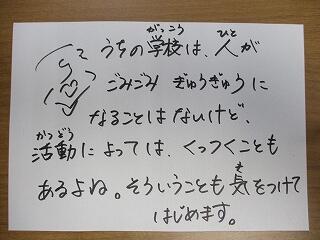 うちの学校は、人が
ごみごみ ぎゅうぎゅうに
なることはないけど、
活動によっては、くっつくことも
あるよね。そういうことも気をつけて
はじめます。